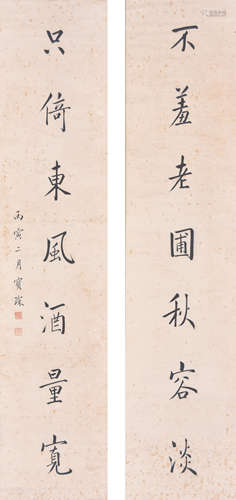 不羞老圃秋容淡
只倚東風酒量寬
丙寅二月寶琛